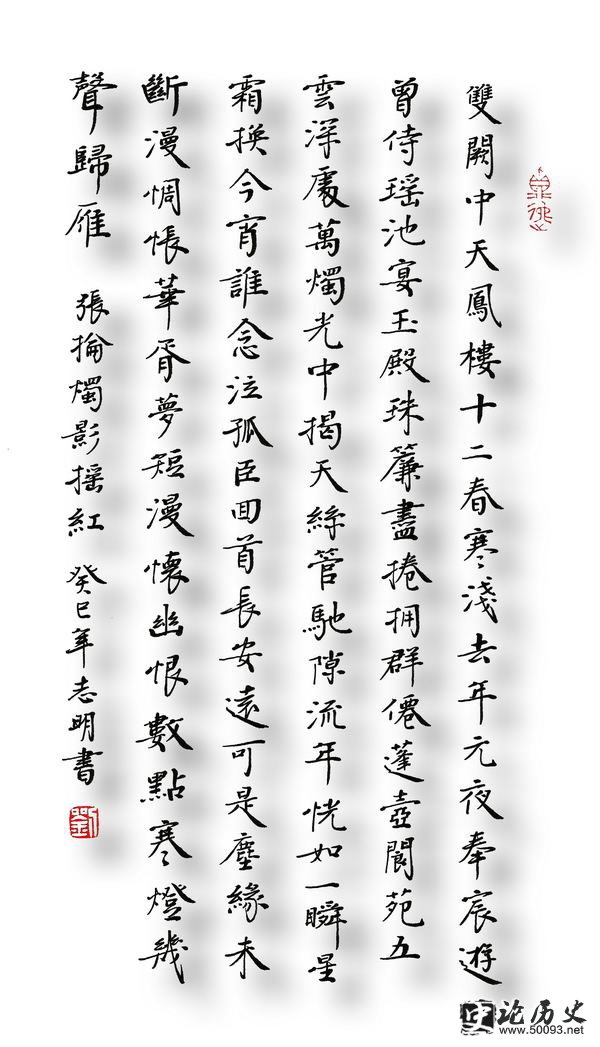 雙闕中天鳳樓十二春寒淺去年元夜奉宸遊
曾侍瑶池宴玉殿珠簾盡捲拥群僊蓬壺閬苑五
雲深處萬燭光中揭天絲管馳隙流年恍如一瞬星
霜换今宵誰念泣孤臣回首長安遠可是塵緣未
斷漫惆悵華胥夢短漫懷幽恨數點寒燈幾
聲歸雁 張掄燭影摇紅 癸巳年志明書
劉
论历史
www.50093.net